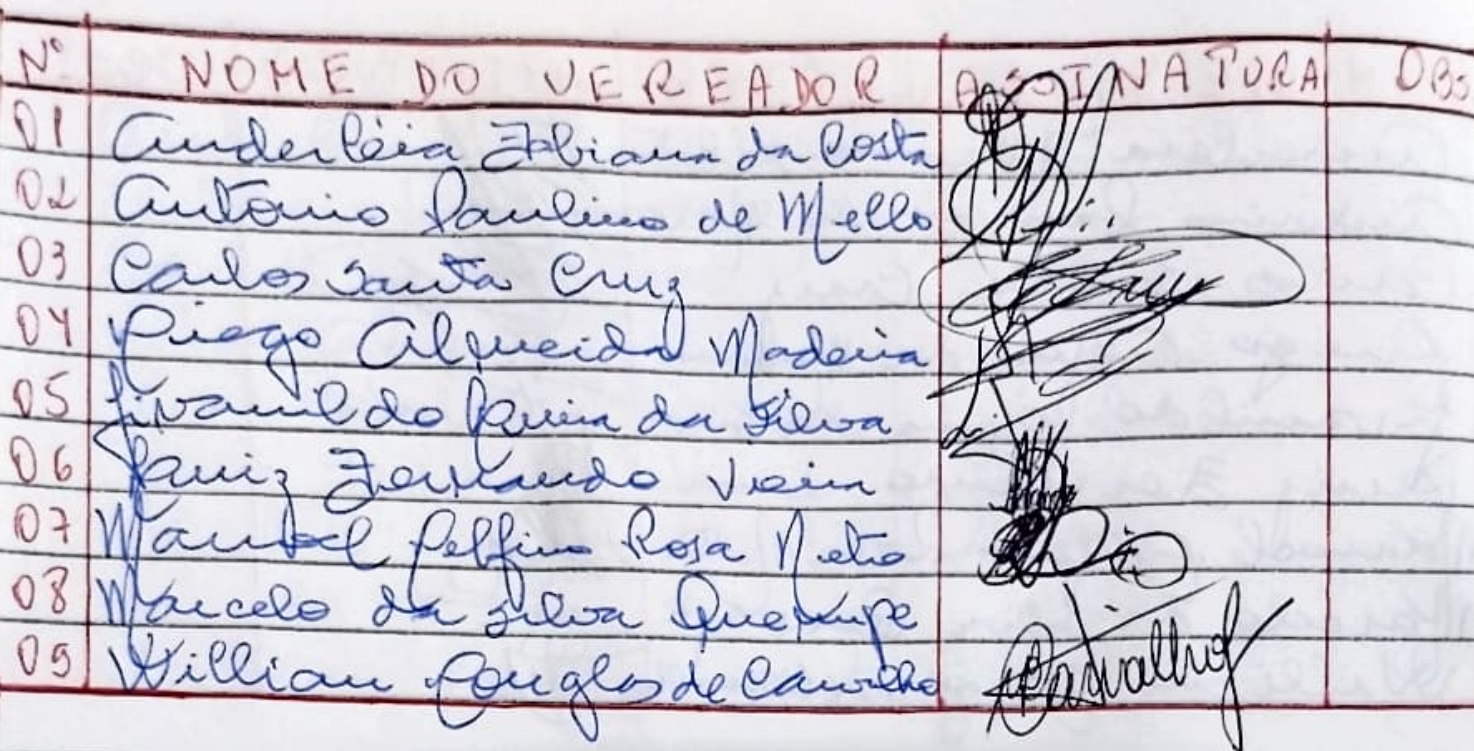 Nº NOME DO VEREADOR ASSINATURA OBS
01 Anderléia Fabiana da Costa
02 Antonio Paulino de Mello
03 Carlos Santa Cruz
04 Diego Almeida Madeira
05 Jivanildo da Silva
06 Luiz Fernando Vieira
07 Manoel Delfino Rosa Neto
08 Marcelo da Silva
09 Willian Douglas de Carvalho Carvalho